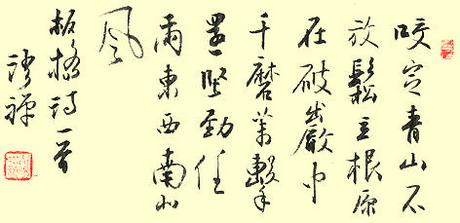 咬定青山不
放鬆立根原
在破巖中
千磨萬擊
還堅勁任
爾東西南北
風
板橋詩一首
禪